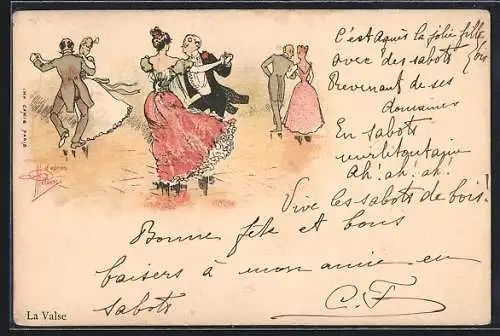 C'est Agnès la jolie fille
avec des sabots (bis
Revenant de ses
domaines
En sabots
mirlitontaine
Ah! ah! ah!
Vive les sabots de bois!
Bonne fête et bons
baisers à mon amie en
sabots
C. F
d'après
La Valse